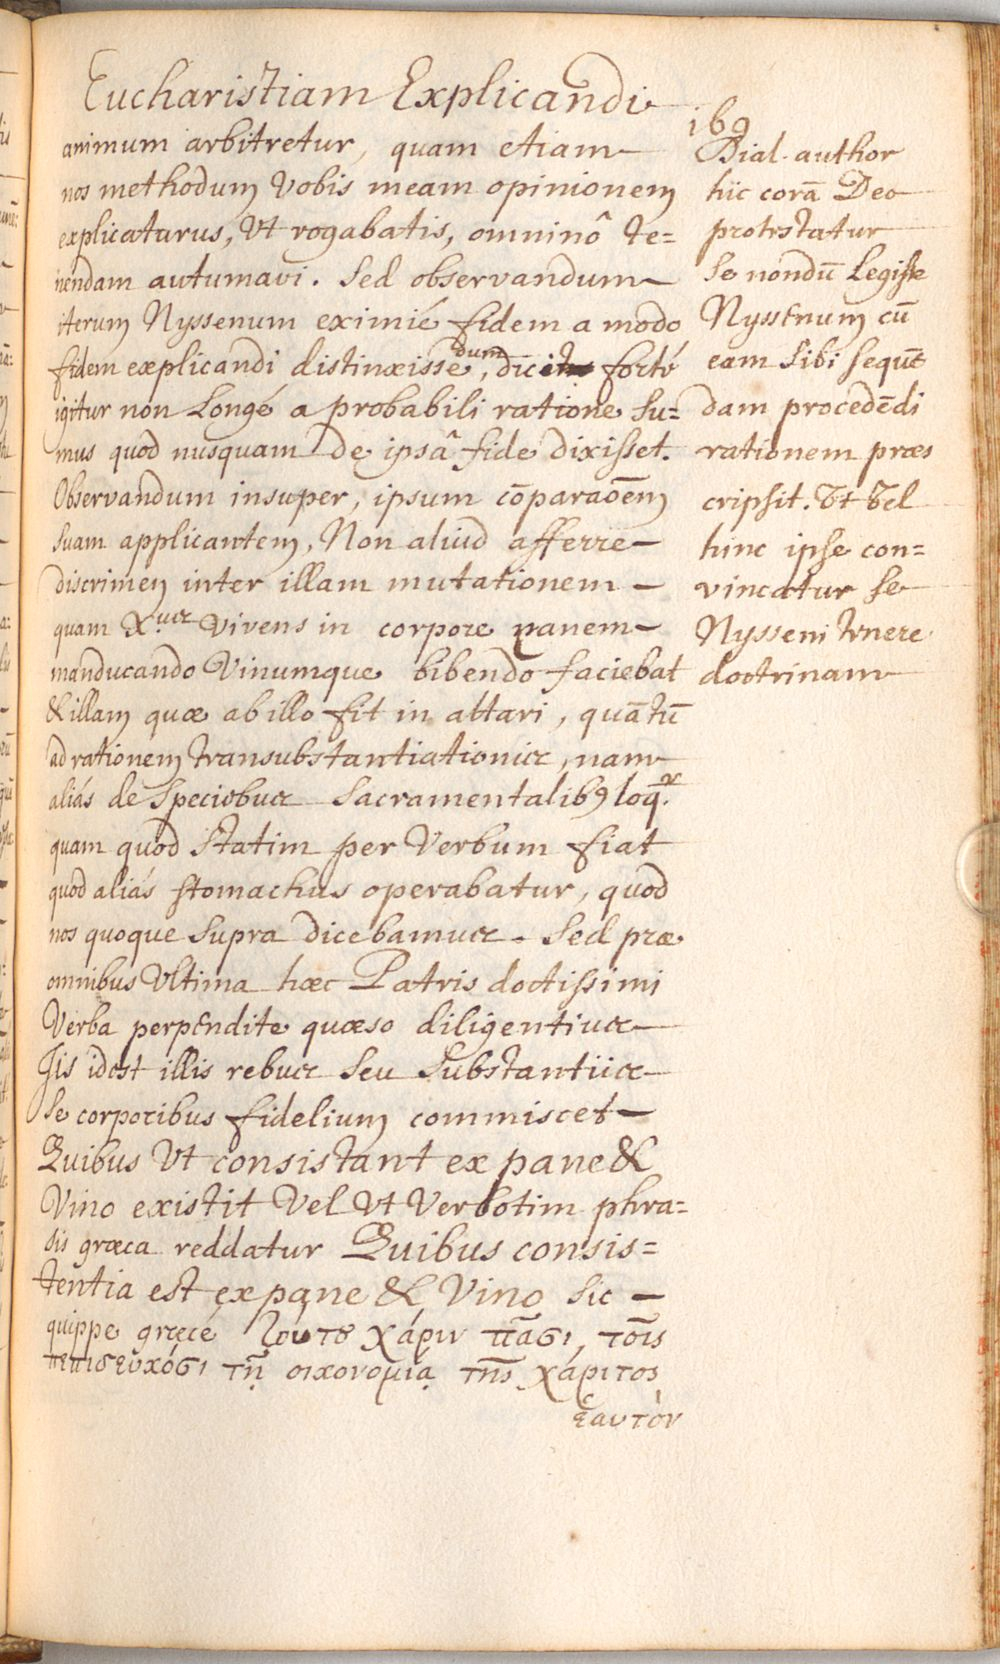 Eucharistiam Explicandi
169
animum arbitretur, quam etiam
nos methodum vobis meam opinionem
explicaturus, Ut rogabatis, omninô te=
nendam autumavi. Sed observandum
iterum Nyssenum eximié fidem a modo
fidem explicandi distinxisse, dum dicit forté
igitur non Longé a probabili ratione su=
mus quod nusquam de ipsâ fide dixisset.
Observandum insuper, ipsum cōparaōem
suam applicantem, Non aliud afferre
discrimen inter illam mutationem
quam Xus vivens in corpore panem
manducando Vinumque bibendo faciebat
& illam quæ ab illo fit in altari, quātū
ad rationem transubstantiationis, nam
aliás de speciebus sacramentalib9 loq.r
quam quod statim per Verbum fiat
quod aliás stomachus operabatur, quod
nos quoque supra dicebamus. Sed præ
omnibus Ultima hæc Patris doctissimi
Verba perpendite quæso diligentius
Iis idest illis rebus seu substantiis
se corporibus fidelium commiscet
Quibus Ut consistant ex pane &
Vino existit Vel Ut Verbotim phra=
sis græca reddatur Quibus consis=
tentia est ex pane & Vino sic
quippe græcé τούτο χάριν πᾶσι, τοῖς
πεπιστευκόσι τῇ οικονομία τῆς χάριτος
ἑαυτόν
Dial. author
hic corā Deo
protestatur
se nondū Legisse
Nyssenum cū
eam sibi sequē
dam procedēdi
rationem præs
cripsit. Ut Vel
hinc ipse con=
vincatur se
Nysseni tenere
doctrinam